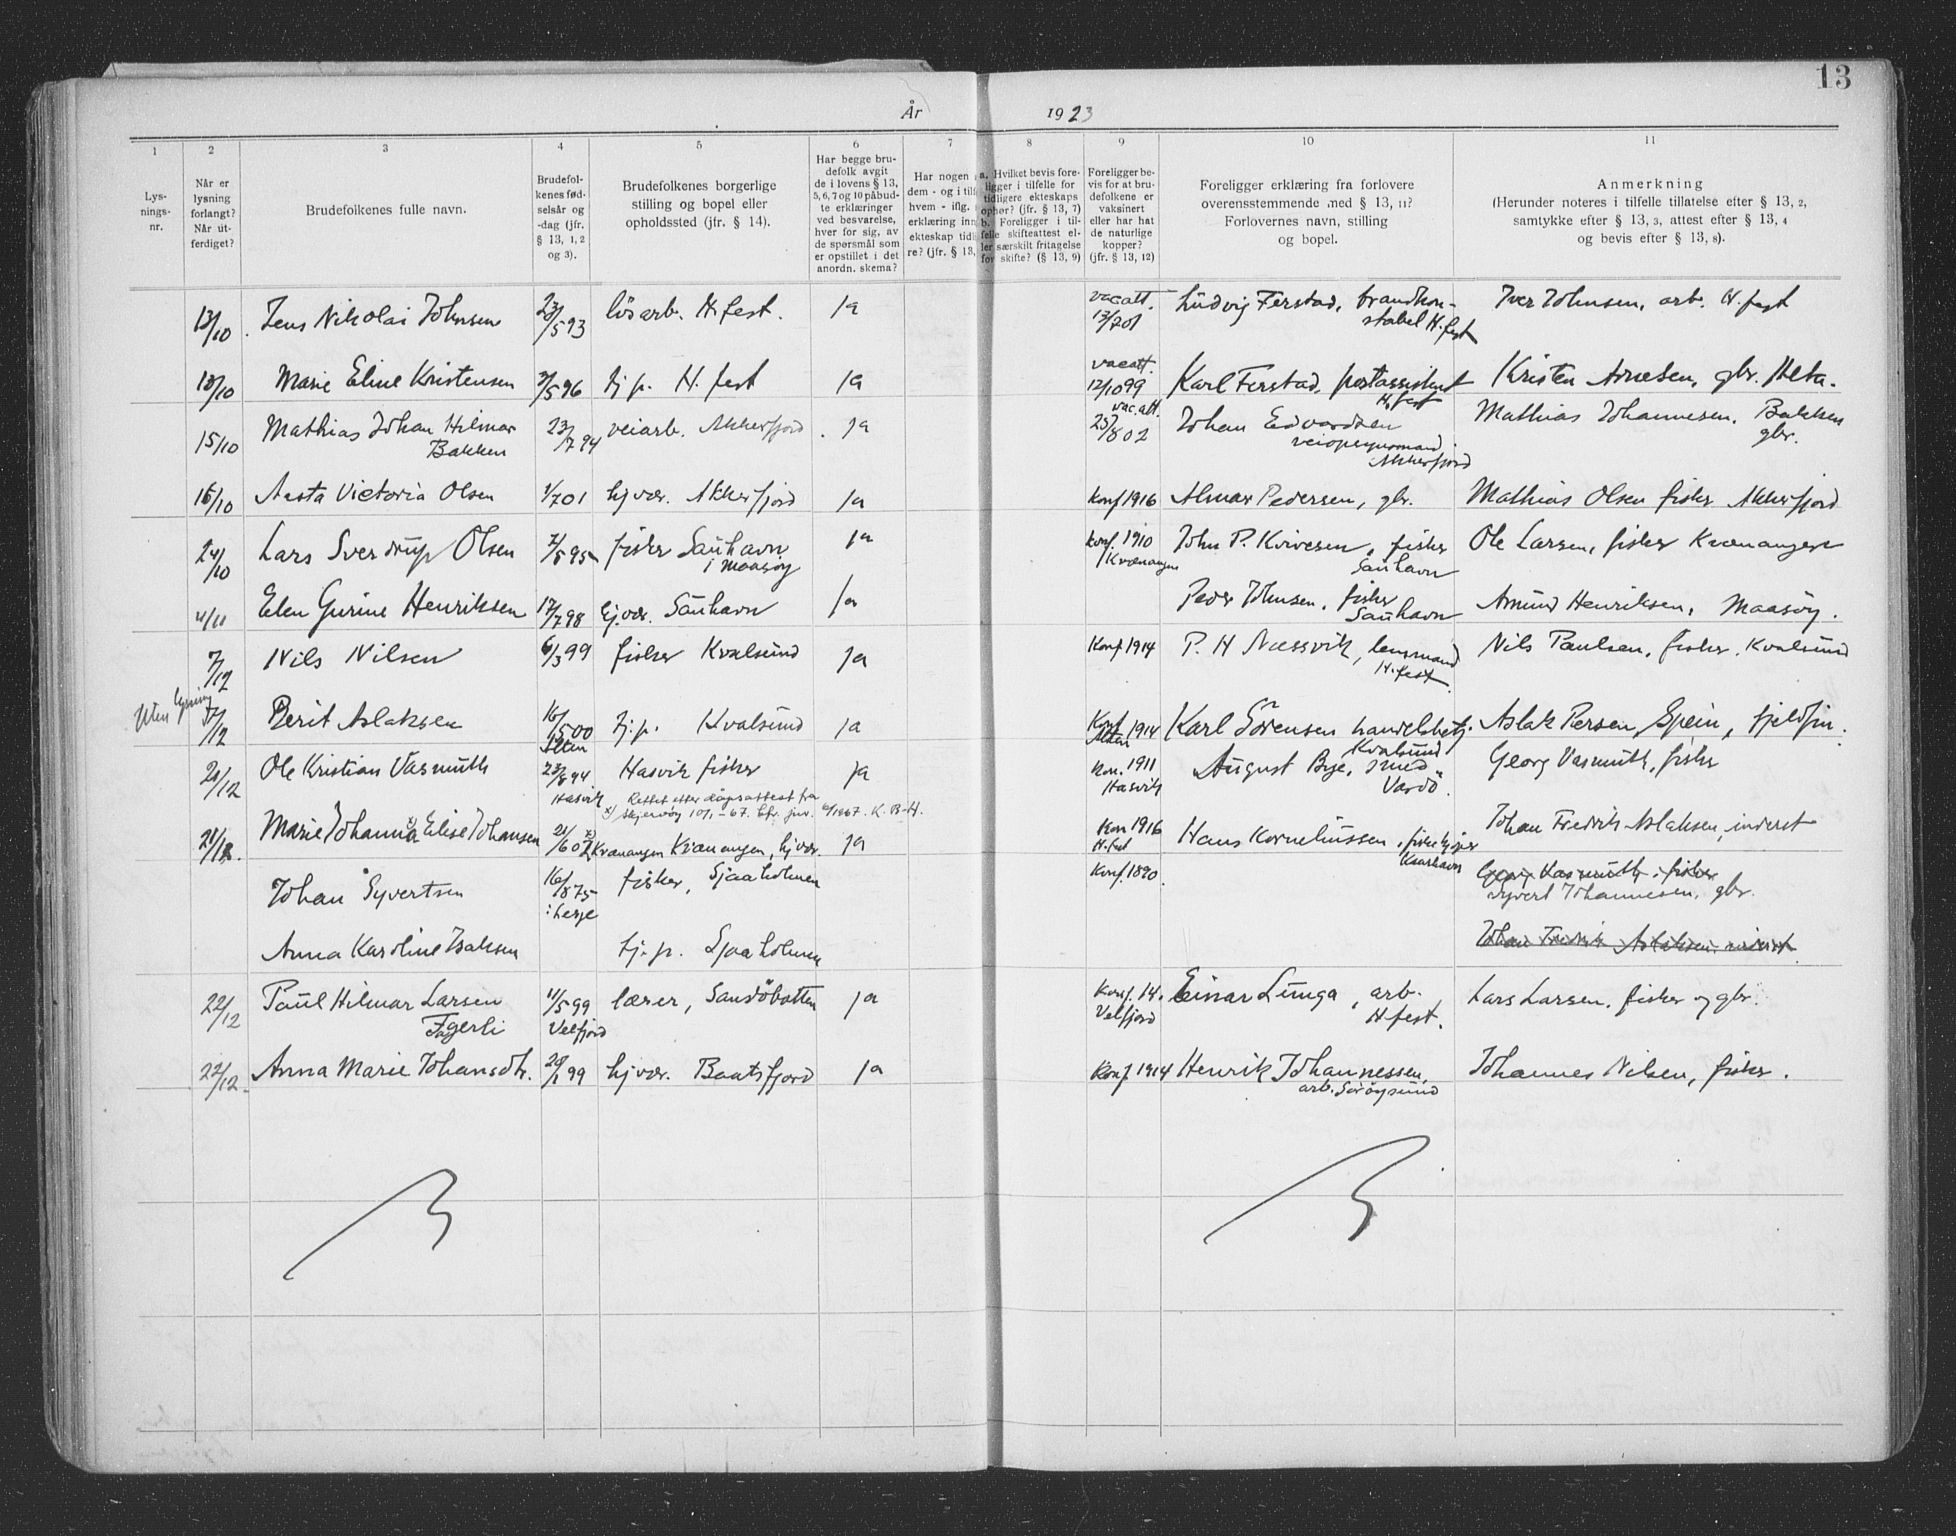 13
År 1923
1 2 3 4 5 6 7 8 9 10 11
Lys-
nings-
nr.
Når er
lysning
forlangt?
Når ut-
ferdiget?
Brudefolkenes fulle navn.
Brudefol-
kenes fød-
selsår og
-dag (jfr.
§ 13, 1, 2
og 3).
Brudefolkenes borgerlige
stilling og bopel eller
opholdssted (jfr. § 14).
Har begge bru-
defolk avgit
de i lovens § 13,
5, 6, 7 og 10 påbud-
te erklæringer
ved besvarelse,
hver for sig, av
de spørsmål som
er opstillet i det
anordn. skema?
Har nogen
dem - og i tilf
hvem - iflg.
erklæring inn
ekteskap tid
re? (jfr. § 13,
a. Hvilket bevis fore-
ligger i tilfelle for
tidligere ekteskaps
ophør? (jfr. § 13, 7)
b. Foreligger i til-
felle skifteattest el-
ler særskilt fritagelse
for skifte? (§ 13, 9)
Foreligger be-
vis for at bru-
defolkene er
vaksinert
eller har hat
de naturlige
kopper?
(jfr. § 13, 12)
Foreligger erklæring fra forlovere
overensstemmende med § 13, 11?
Forlovernes navn, stilling
og bopel.
Anmerkning
(Herunder noteres i tilfelle tillatelse efter § 13, 2,
samtykke efter § 13, 3, attest efter § 13, 4
og bevis efter § 13, 8).
13/10. Jens Nikolai Johnsen 23/5 93 løsarb. H.fest. ja vac att. 13/7 01 Ludvig Ferstad, brandkon-
stabel H.fest Iver Johnsen, arb. H.fest
13/10 Marie Eline Kristensen 3/5 96 tj.p. H.fest ja vacatt. 12/10 99 Karl Ferstad, postassistent
H.fest Kristen Arnesen, gbr. Alta.
15/10 Mathias Johan Hilmar
Bakken 23/7 94 veiarb. Akkerfjord. ja vac. att. 25/8 02 Johan Edvardsen
Akkerfjord Mathias Johannesen, Bakken
gbr.
16/10 Aasta Victoria Olsen 1/7 01 hj.vær. Akkerfjord ja Konf 1916 Almar Pedersen, gbr. Mathias Olsen fisker Akkerfjord
24/10 Lars Sverdrup Olsen 2/8 95 fisker Sauhavn
i Maasøy ja Konf. 1910
Kvænangen John P. Kvivesen, fisker
Sauhavn Ole Larsen, fisker Kvænangen
4/11 Elen Gurine Henriksen 17/7 98 hj.vær. Sauhavn ja Peder Johnsen, fisker
Sauhavn Amund Henriksen, Maasøy.
7/12 Nils Nilsen 6/3 99 fisker Kvalsund ja Konf 1914 P. H Næssvik, lensmand
H.fest. Nils Paulsen, fisker, Kvalsund
Uten lysning 7/12 Berit Aslaksen 16/5 00
Alten tj.p. Kvalsund ja Konf 1914
Alten Karl Sørensen handelsbetj.
Kvalsund Aslak Persen, Spein, fjeldfin.
21/12 Ole Kristian Vasmuth 23/8 94
Hasvik Hasvik fisker ja Kon. 1911
Hasvik August Bye, smed
Vardø Georg Vasmuth, fisker
x) Rettet efter dåpsattest fra
Skjervøy 10/1-67. K. B-H.
21/12 Marie Johanna x) Elise Johansen 21/6 02 x)
Kvænangen Kvænangen, hj.vær. ja Kon 1916
H.fest Hans Kornelinssen, fiskekjøper
Kaarhavn Johan Fredrik Aslaksen, inderst
Johan Syvertsen 16/8 75
i Lesje fisker, Sjaaholmen Konf. 1890. Georg Vasmuth, fisker
Syvert Johannesen, gbr.
Anna Karoline Isaksen tj.p. Sjaaholmen Johan Fredrik Aslaksen, inderst.
22/12 Paul Hilmar Larsen
Fagerli 11/5 99
Velfjord lærer, Sandøbotten ja Konf. 14.
Velfjord Einar Lunga, arb.
H.fest. Lars Larsen, fisker og gbr.
22/12. Anna Marie Johansdtr. 28/1 99 hj.vær. Baatsfjord ja Konf. 1914 Henrik Johannessen,
arb. Sørøysund Johannes Nilsen, fisker.